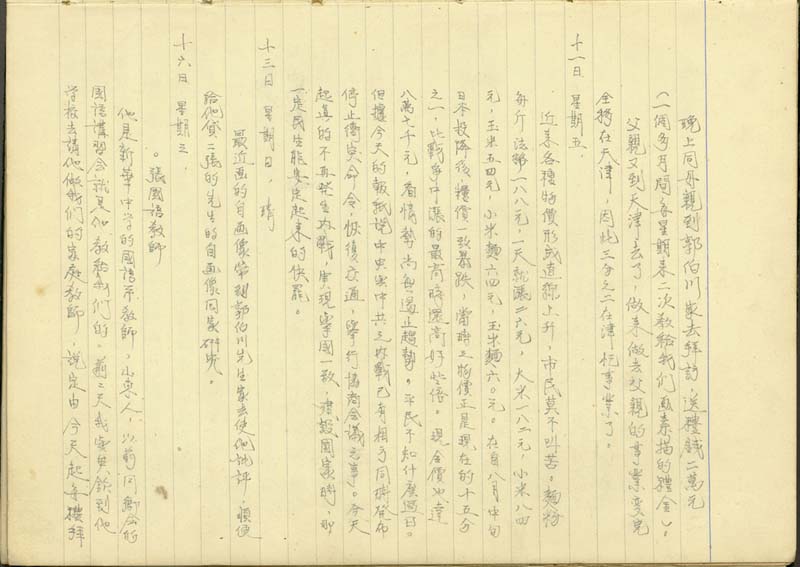 晚上同母親到郭伯川家去拜訪，送禮錢二萬元
（一個多月間每星期來二次教給我們画素描的禮金）。
父親又到天津去了，做來做去父親的事業变完
全移在天津，因此三分之二在津忙事業了。
十一日 星期五、
近来各種物價形成直線上升，市民莫不叫苦。麵粉
每斤法幣一八八元，一天就漲二六元，大米一八二元，小米八四
元，玉米五四元，小米麵六四元，玉米麵六〇元。在自八月中旬
日本投降後糧價一致暴跌，當時之物價正是現在的十五分
之一，比戰争中漲的最高時還高好些倍。現金價也達
八萬七千元，看情勢尚無遏止趨勢。平民不知什麽過日。
但據今天的報紙説中央與中共之内戰已有相方同時發布
停止衝突命令，恢復交通，舉行協商会議之事。今天
起真的不再発生内戰，實現舉國一致，建設國家時，即
一定民生能安定起来的快罷。
十三日 星期日，晴
最近画的自画像帶到郭伯川先生家去使他批評，順便
給他貸二張的先生的自画像回家研究。
十六日 星期三、
。張國語教師
他是新華中学的國語系教師，山東人，以前同鄉会的
國語講習会就是他教給我們的。前二天我與 到他
学校去請他做我們的家庭教師，説定由今天起每禮拜